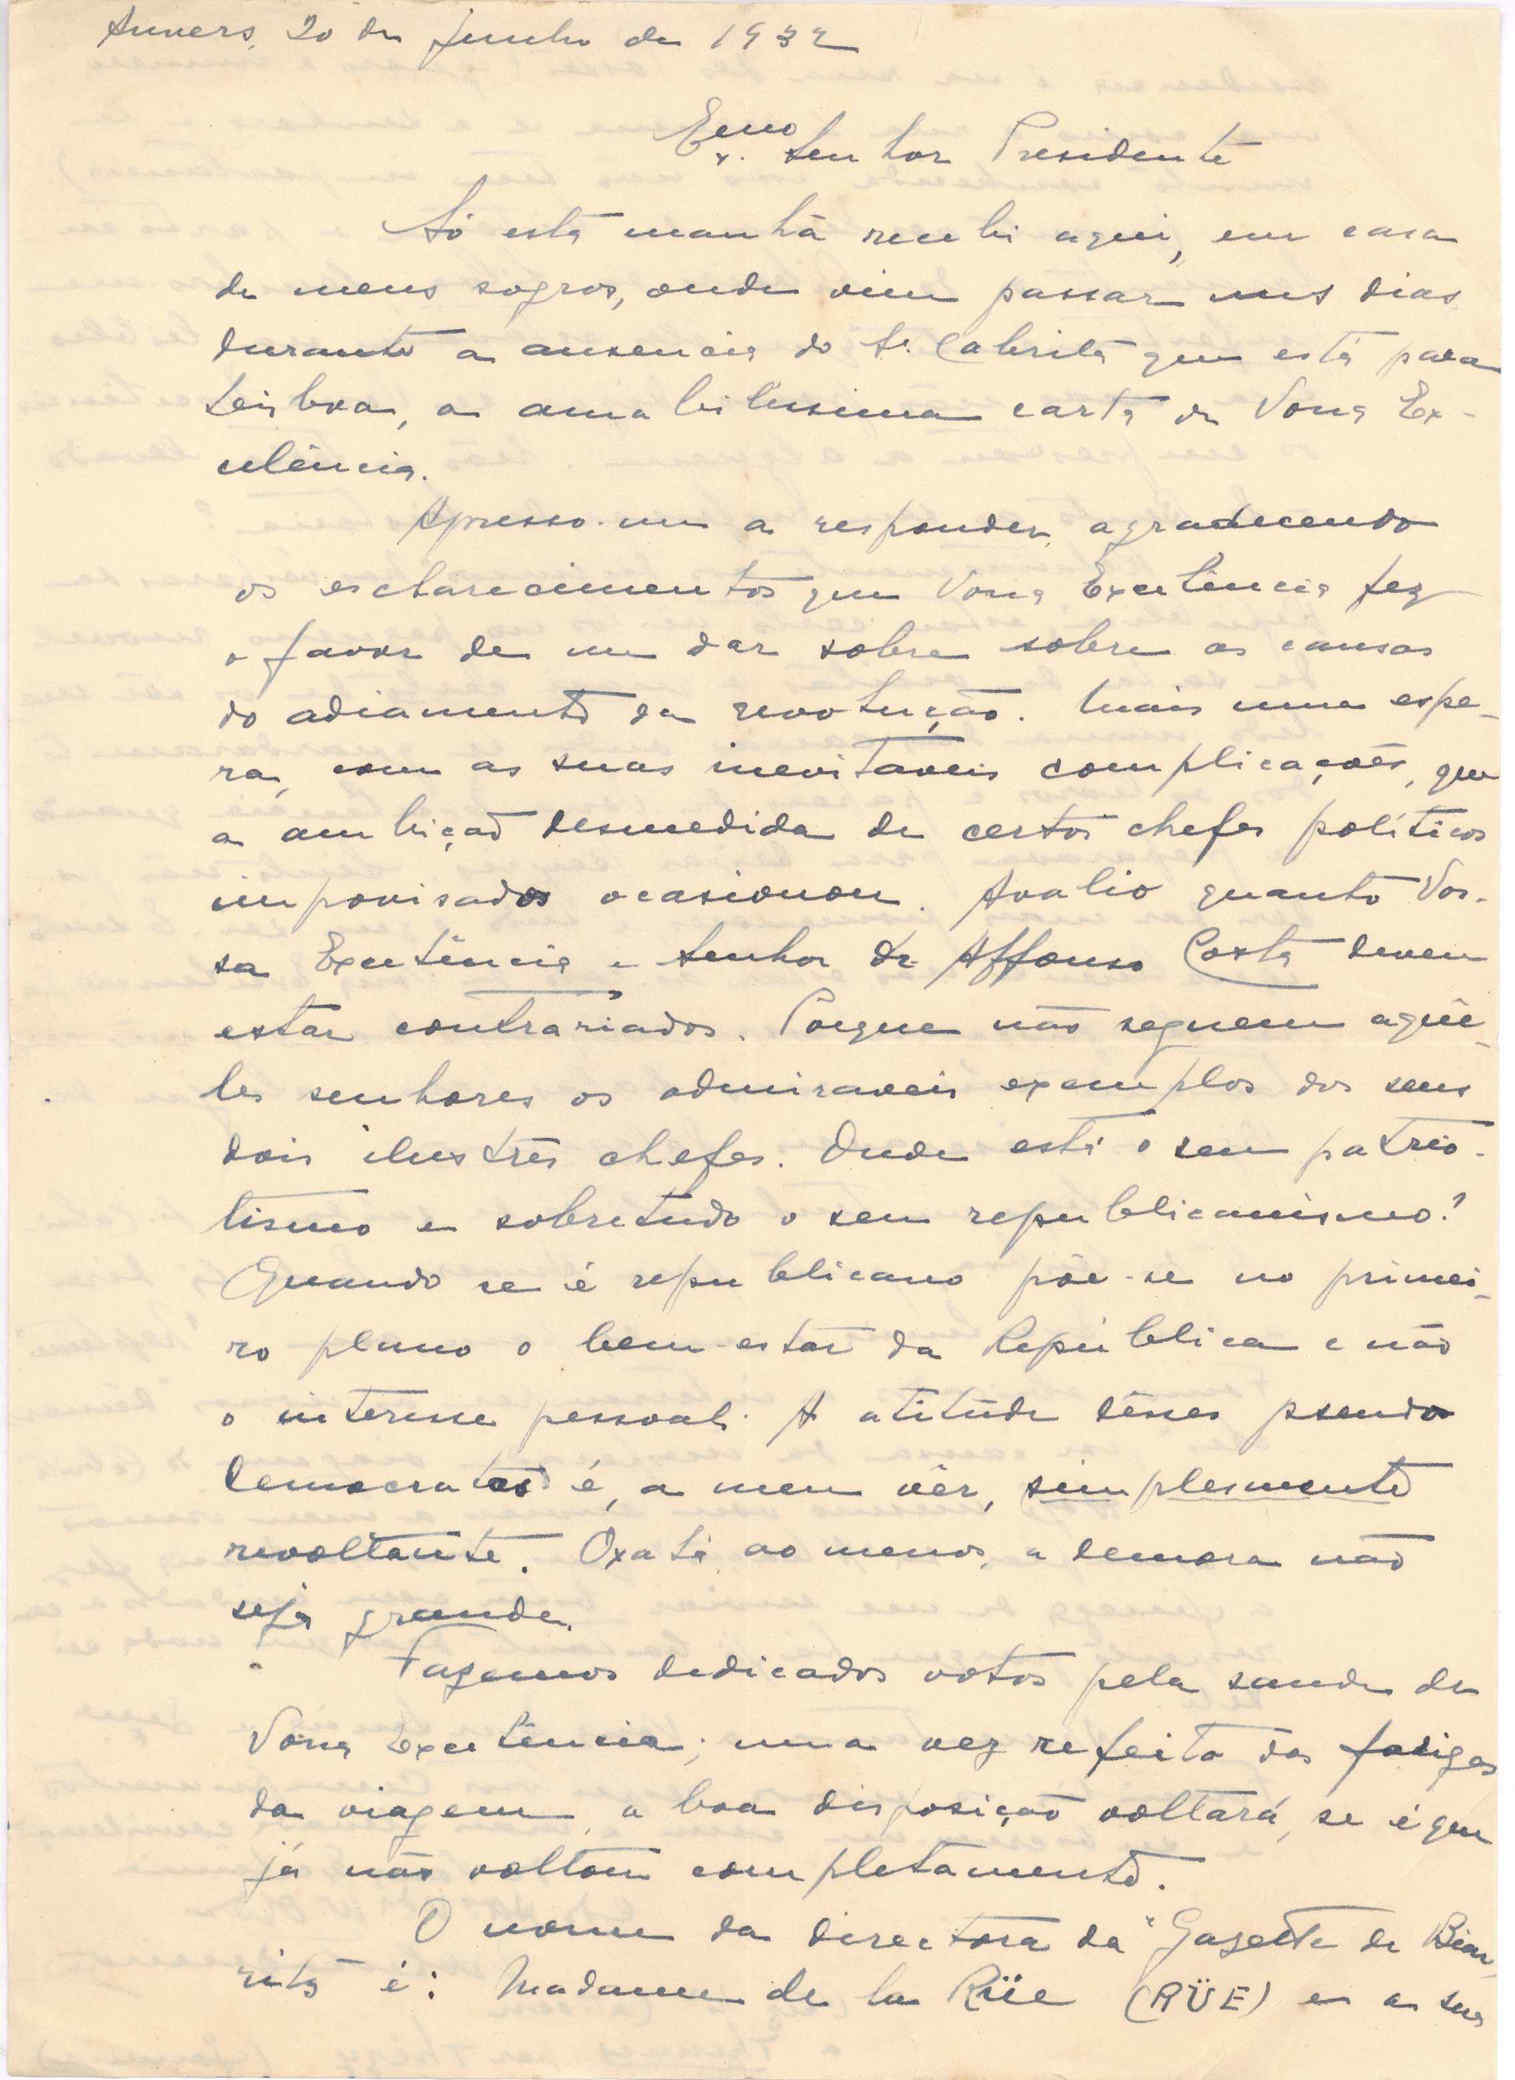 Anvers, 20 de Junho de 1932
Exmo. Senhor Presidente
Só esta manhã recebi aqui, em casa
de meus sogros, onde vim passar uns dias
durante a ausencia do Sr. Cabrita que está para
Lisboa, a amabilissima carta de Vossa Ex-
celência.
Apresso-me a responder, agradecendo
os esclarecimentos que Vossa Excelência fez
o favor de me dar sobre sobre as causas
do adiamento da revolução. Mais uma espe-
ra, com as suas inevitaveis complicações, que
a ambição desmedida de certos chefes políticos
improvisados ocasionou. Avalio quanto Vos-
sa Excelência e Senhor Dr. Affonso Costa devem
estar contrariados. Porque não seguem aquê-
les senhores os admiraveis exemplos dos seus
dois ilustres chefes. Onde está o seu patrio-
tismo e sobretudo o seu republicanismo?
Quando se é republicano põe-se no primei-
ro plano o bem-estar da República e não
o interesse pessoal. A atitude dêsses pseudo
democratas é, a meu vêr, simplesmente
revoltante. Oxalá, ao menos, a demora não
seja grande.
Fazemos dedicados votos pela saude de
Vossa Excelência; uma vez refeito das fadigas
da viagem, a boa disposição voltará, se é que
já não voltou completamente.
O nome da directora da "Gazette de Biar-
ritz é: Madame de la Rüe (RÜE) e a sua